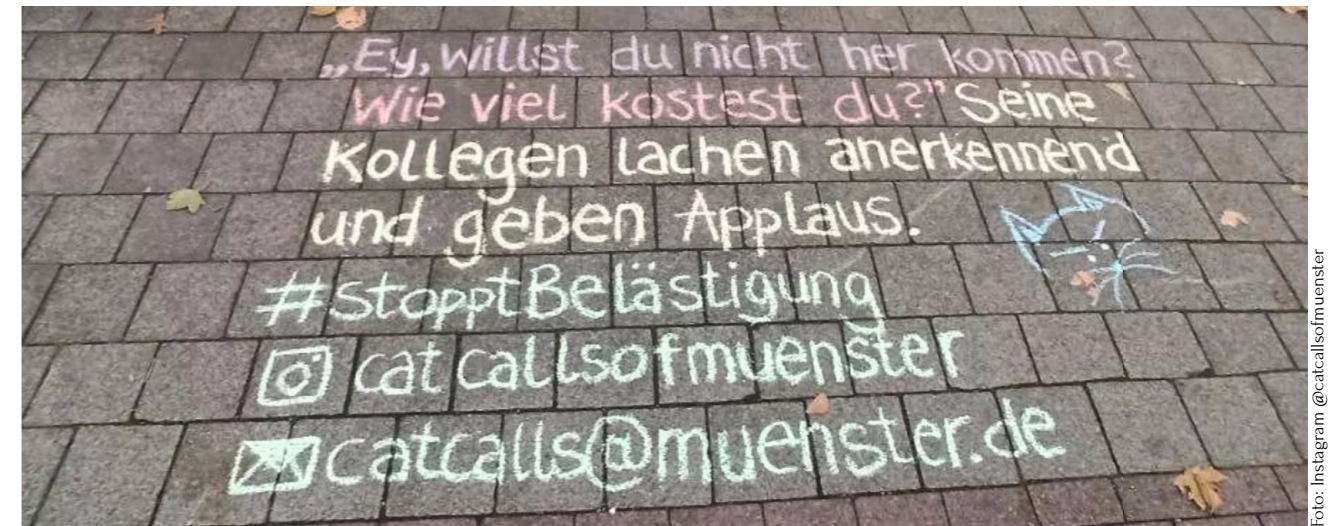 „Ey, willst du nicht her kommen?
Wie viel kostest du?" Seine
Kollegen lachen anerkennend
und geben Applaus.
#StopptBelästigung
catcallsofmuenster
catcalls@muenster.de
Foto: Instagram @catcallsofmuenster